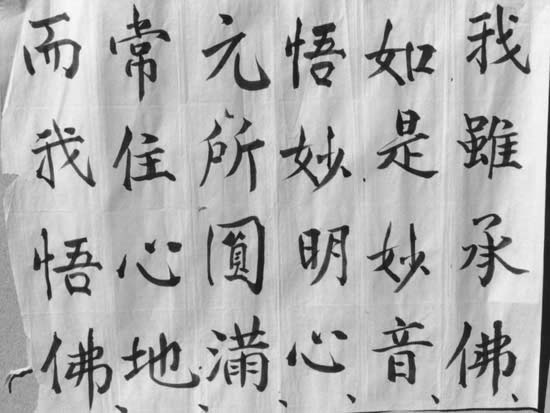 我雖承佛、
如是妙音、
悟妙明心、
元所圓滿、
常住心地、
而我悟佛